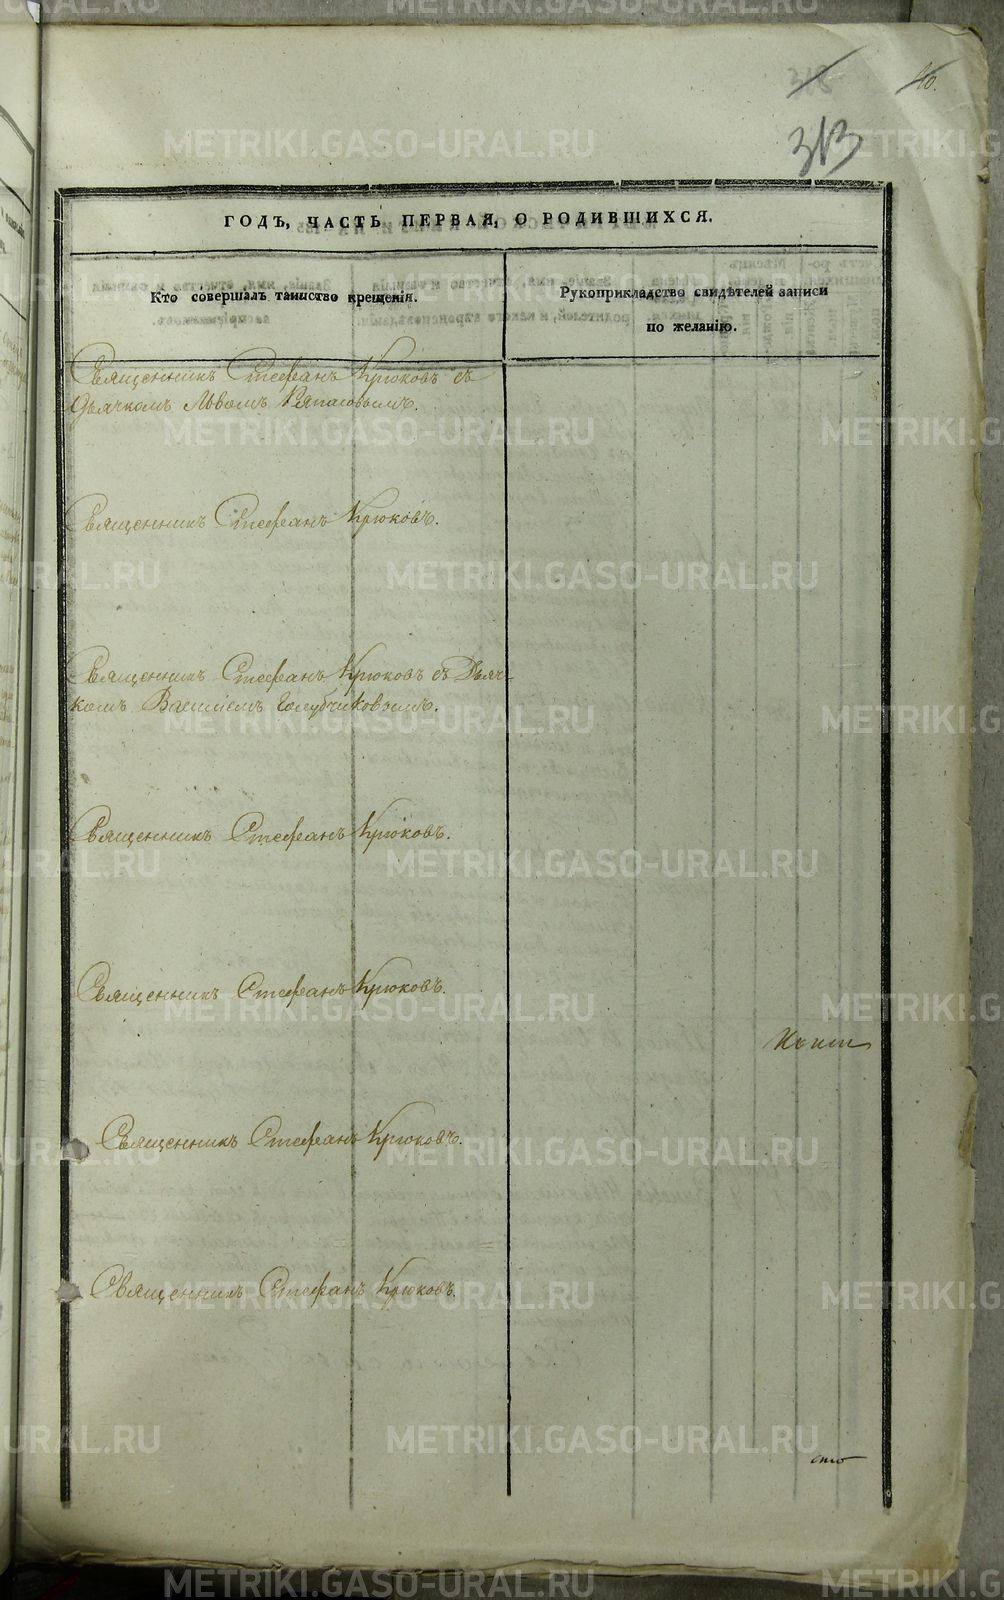 318
40.
313
ГОДЪ, ЧАСТЬ ПЕРВАЯ, О РОДИВШИХСЯ.
Кто совершалъ таинство крещенія.
Рукоприкладство свидѣтелей записи
по желанію.
Священникъ Стефанъ Крюковъ съ
Дьячкомъ Львомъ
Священникъ Стефанъ Крюковъ.
Священникъ Стефанъ Крюковъ съ Дьяч-
комъ Василіемъ Голубчиковымъ.
Священникъ Стефанъ Крюковъ.
Священникъ Стефанъ Крюковъ.
Священникъ Стефанъ Крюковъ.
Священникъ Стефанъ Крюковъ.
METRIKI.GASO-URAL.RU